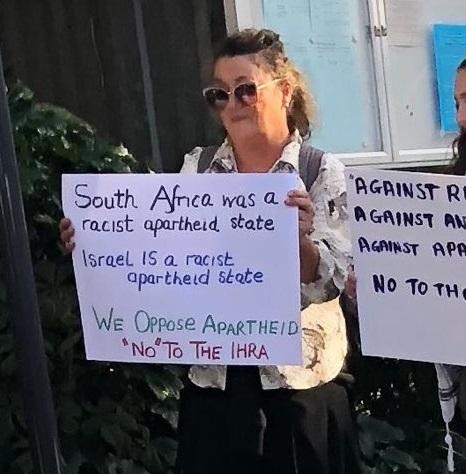 South Africa was a
racist apartheid state
Israel IS a racist
apartheid state
WE OPPOSE APARTHEID
"NO" TO THE IHRA
"AGAINST R
AGAINST AN
AGAINST APA
NO TO TH